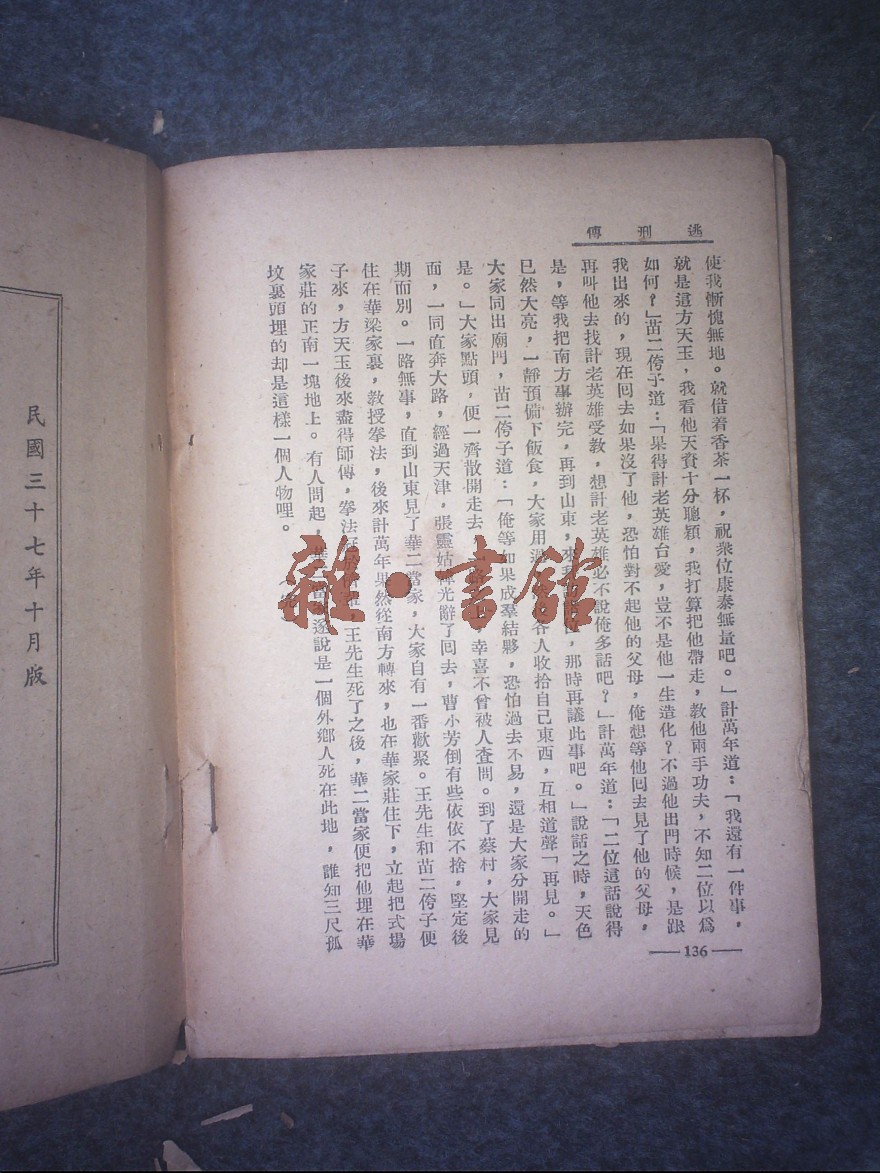 逃刑傳
使我慚愧無地。就借着香茶一杯，祝衆位康泰無量吧。」計萬年道：「我還有一件事，
就是這方天玉，我看他天資十分聰穎，我打算把他帶走，教他兩手功夫，不知二位以爲
如何？」苗二侉子道：「果得計老英雄台愛，豈不是他一生造化？不過他出門時候，是跟
我出來的，現在回去如果沒了他，恐怕對不起他的父母，俺想等他回去見了他的父母，
再叫他去找計老英雄受教，想計老英雄必不說俺多話吧？」計萬年道：「二位這話說得
是，等我把南方事辦完，再到山東，來
那時再議此事吧。」說話之時，天色
已然大亮，一靜預備下飯食，大家用
各人收拾自己東西，互相道聲「再見。」
大家同出廟門，苗二侉子道：「俺等如果成羣結夥，恐怕過去不易，還是大家分開走的
是。」大家點頭，便一齊散開走去
幸喜不曾被人查問。到了蔡村，大家見
面，一同直奔大路，經過天津，張靈姑
光辭了回去，曹小芳倒有些依依不捨，堅定後
期而別。一路無事，直到山東見了華二當家，大家自有一番歡聚。王先生和苗二侉子便
住在華梁家裏，教授拳法，後來計萬年果然從南方轉來，也在華家莊住下，立起把式場
子來，方天玉後來盡得師傳，拳法
王先生死了之後，華二當家便把他埋在華
家莊的正南一塊地上。有人問起，
說是一個外鄉人死在此地，誰知三尺孤
墳裏頭埋的却是這樣一個人物哩。
136
民國三十七年十月版
雜·書館